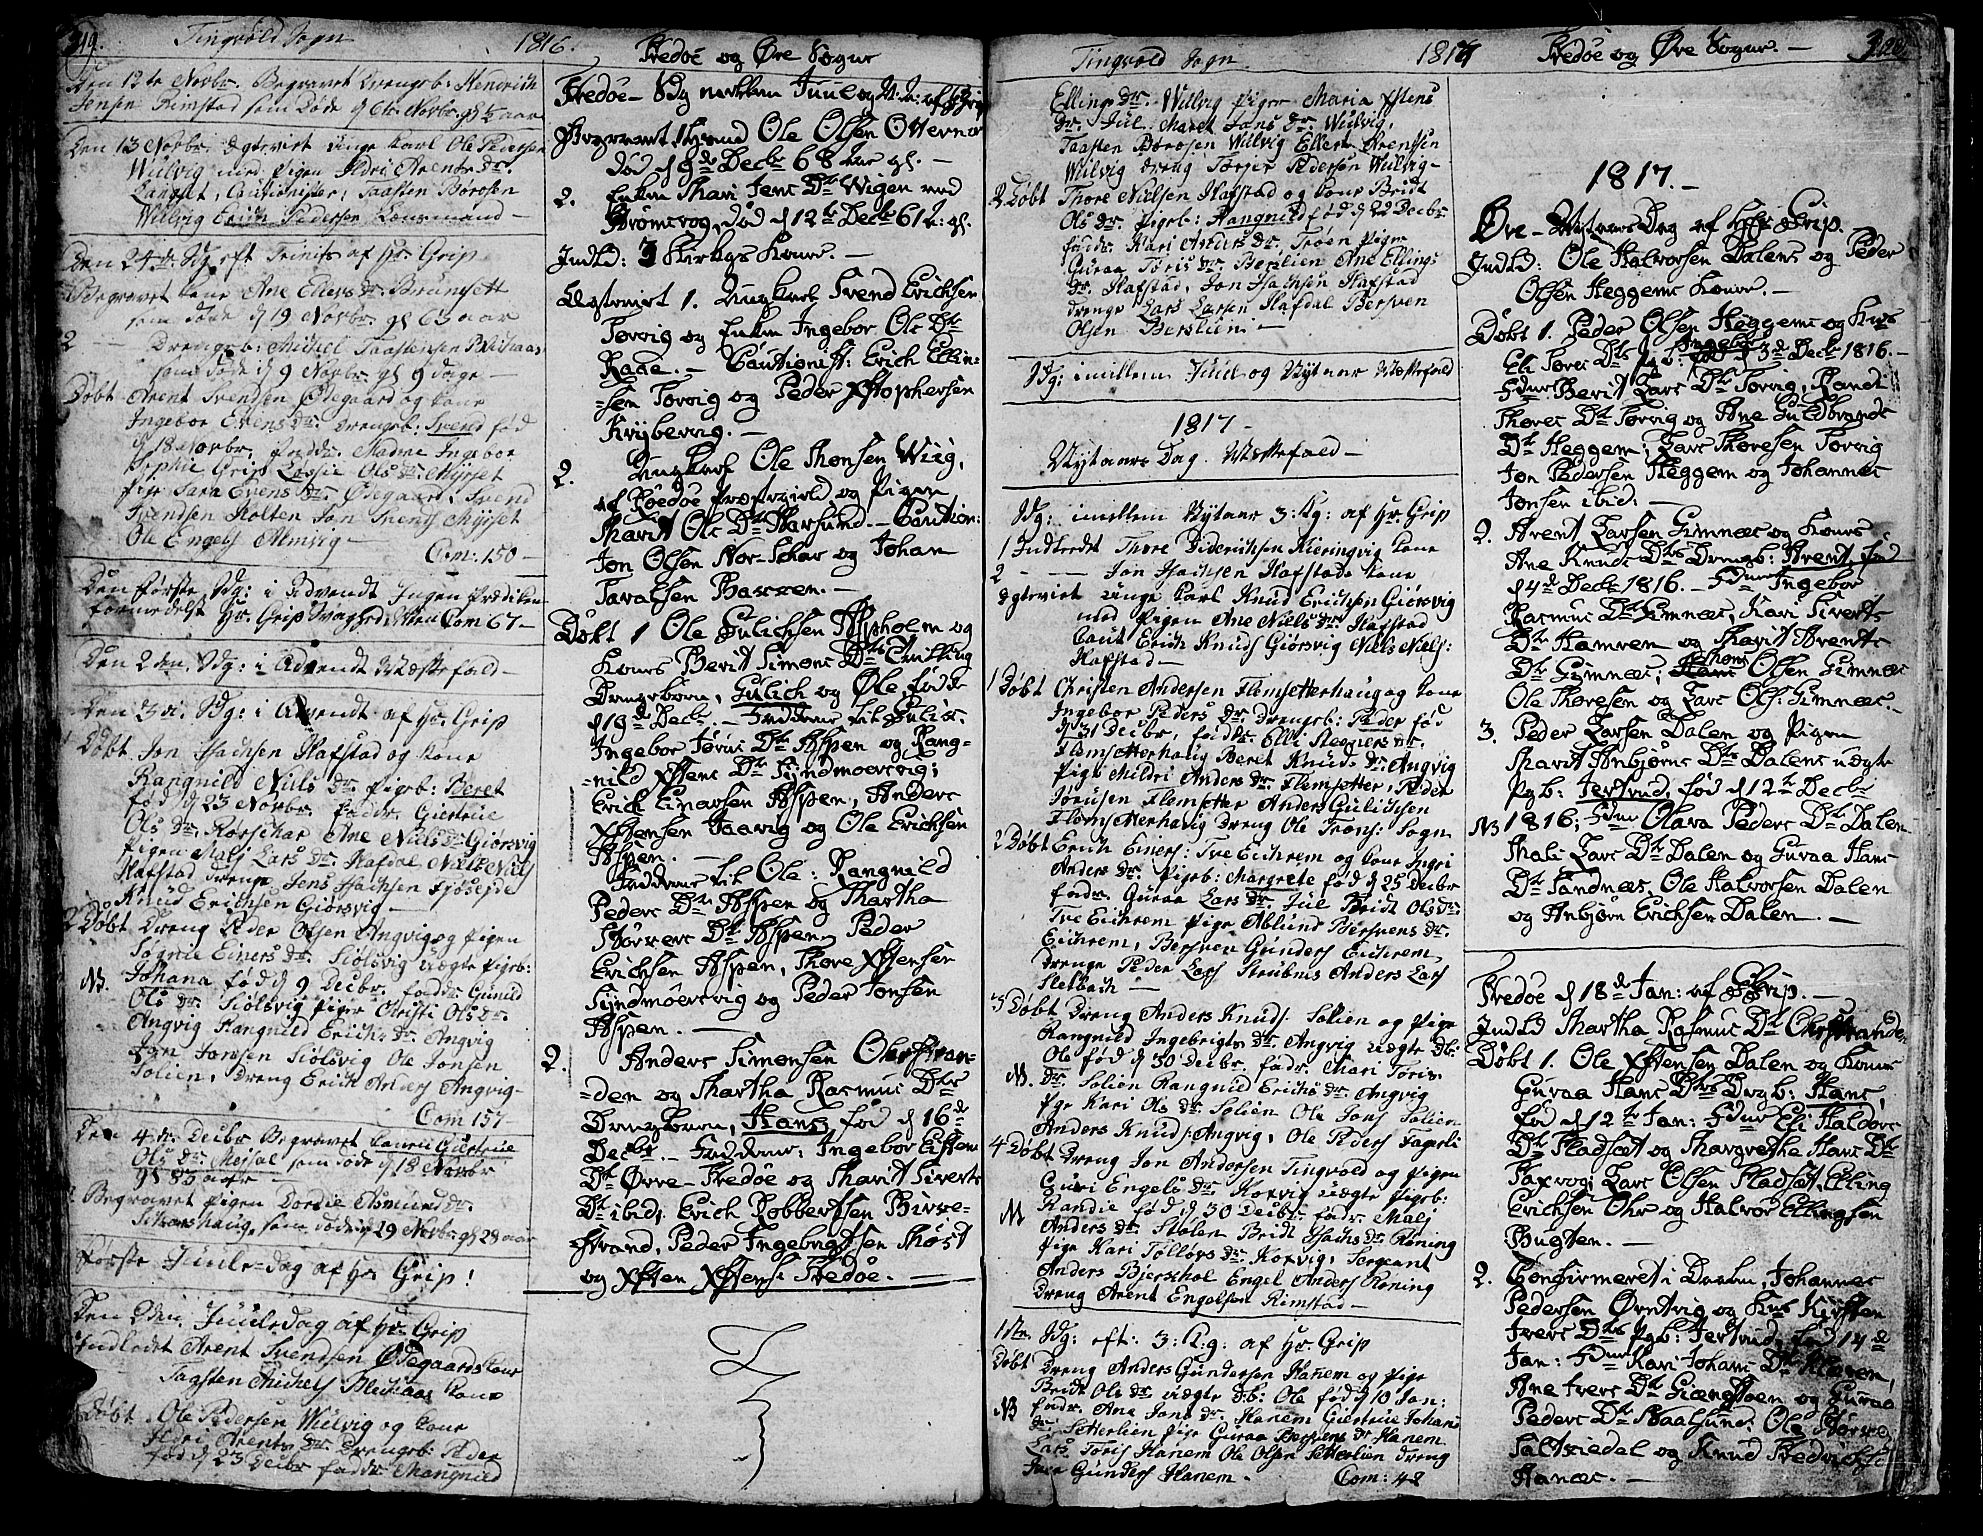 319. Tingvold Sogn 1816. Fredøe og Øre Sogne
Den 12te Novbr. Begravet Drengeb: Hendrich
Jensen Rimstad som døde d 6te Novbr. gl ½ aar
Den 13 Novbr. Egteviet unge karl Ole Pedersen
Wulvig med Pigen Ildri Arents dr.
Langset, Cautionister, Taasten Borosen
Wulvig Erich Pedersen Lensmand —
Den 24de Sdg eft Trinits af Hr. Grip
Begravet kone Ane Ellevs dr. Brunsett
som døde d 19 Novbr. gl 63 aar
2 — Drengeb: Michel Taastensen
som døde d 9 Novbr. gl 9 dage —
Døbt Arent Svendsen Ødegaard og kone
Ingebor Evens dr. Drengeb: Svend fød
d 18 Novbr. fadd: Madme Ingebor
Sophie Grip Lassie Ols dr. Myrset
Pige Sara Evens dr. Ødegaard, Svend
Svendsen Holten Jon Svends Myrset
Ole Engels Almvig —
Com: 150 —
Den første Sdg: i Advendt Ingen Prædiken
formedelst Hr. Grip Com 67 —
Den 2den Sdg: i Advendt Mæssefald —
Den 3de Sdg: i Advendt af Hr. Grip
1 Døbt Jon Isachsen Hafstad og kone
Rangnild Niels dr. Pigeb: Beret
fød d 23 Novbr. fadd: Giertrue
Ols dr. Rorschar Ane Niels dr. Giørsvig
Pigen Mali Lars dr. Hafdal Niels Niels
Hafstad Drenge Jens Isachsen
Knud Erichsen Giørsvig —
2 Døbt Dreng Peder Olsen Angvig og Pigen
Einers dr. Siølsvig uægte Pigeb:
N. Johana fød d 9 Decbr. fadd: Gunild
Ols dr. Siølsvig Piger Christi Ols dr.
Angvig Rangnild Erichs dr. Angvig
Jon Jonsen Siølsvig Ole Jonsen
Solien, Dreng Erich Anders Angvig —
Com 157
Den 4de Decbr Begravet Giertrue
Ols dr. Meisal som døde d 18 Novbr
gl 85 aar —
Begravet Pigen Dordie Asmunds dr.
Scharshaug, som døde d 29 Novbr. gl 28 aar
Første Juule-Dag af Hr. Grip!
Den 2den Juuledag af Hr. Grip
Indledet Arent Svendsen Ødegaards kone
Taasten Michels kone
Døbt Ole Pedersen Wulvig og kone
Ildri Arents dr. Drengeb: Peder
fød d 23 Decbr fadd: Mangnild
Fredøe — Sdg mellem Juul og N. A: af Hr Grip
Begravet 1. Mand Ole Olsen Otternæs
død d 9de Decbr 68 Aar gl. —
2. Enken Marit Jens Dtr Wigen ved
Bromsvog, død d 12te Decbr 61 A: gl.
Indld: 3 Kirkegs Koner. —
Egteviet 1. Ungkarl Svend Erichsen
Torvig og Enken Ingebor Ols Dtr
Rade. — Cautionist: Erich Ellin-
=sen Torvig og Peder Xstophersen
Kvisvig. —
2. Ungkarl Ole Thonsen Wiig,
af Roedøe Præstegield og Pigen
Marit Ols Dtr Korsund. — Caution:
Jon Olsen Nor-Schar og Johan
Tavalsen Barren. —
Døbt 1 Ole Gulichsen Aspholm og
Kones Berit Simons Dtr Tvilling
Drengebørn, Gulich og Ole, fødte
d 19de Decbr. — Fadderne til Gulich:
Ingebor Jørns Dtr Aspen og Rang-
=nild Xstens Dtr Syndmoersvig;
Erich Einarsen Aspen, Anders
Xstensen Taavig og Ole Erichsen
Aspen. —
Fadderne til Ole: Rangnild
Peders Dtr Aspen og Martha
Størkers Dtr Aspen, Peder
Erichsen Aspen, Thore Xstensen
Syndmoersvig og Peder Jonsen
Aspen. —
2. Anders Simonsen Ohrstran-
=den og Martha Rasmus Dtrs
Drengebarn, Hans, fød d 16de
Decbr. — Faddere: Ingebor Estens
Dtr Øvre-Fredøe og Marit Siverts
Dtr ibid, Erich Robbertsen Birke-
strand, Peder Ingebrigtsen Møst
og Xsten Xstens: Fredøe. —
Tingvold Sogn 1817 Fredøe og Øre Sogne. — 320.
Ellings dr. Wulvig Piger Maria Xstens
dr. Jul: Maret Jons dr. Wulvig,
Taasten Borosen Wulvig Ellert Arentsen
Wulvig dreng Torger Pedersen Wulvig —
2 Døbt Thore Nielsen Hafstad og kone Bridt
Ols dr. Pigeb: Rangnild fød d 22 Decbr
fadd: Kari Anders dr. Troen Pige
Guraa Toris dr. Berslien Ane Ellings
dr. Hafstad, Jon Isachsen Hafstad
Drenge Lars Larsen Hafdal Bersven
Olsen Berslien —
Sdg: imellem Juul og Nytaar Mæssefald
1817 —
Nytaars Dag. Mæssefald —
Sdg: imellem Nytaar 3: Kg: af Hr. Grip
1 Indledet Thore Diderichsen Kieringvig kone
2 — — Jon Isachsen Hafstads kone
Egteviet unge karl Knud Erichsen Giørsvig
med Pigen Ane Niels dr. Hafstad
Caut. Erich Knuds Giørsvig Niels Niels:
Hafstad —
1 Døbt Christen Andersen Flemsetterhaug og kone
Ingebor Peders dr. Drengeb: Peder fød
d 31 Decbr, fadd: Elli dr.
Flemsetterhaug Beret Knuds dr. Angvig
Pige Mildri Anders dr. Flemsetter, Peder
Jørusen Flemsetter Anders Gulichsen
Flemsetterhaug Dreng Ole Trons: Sogn
2 Døbt Erich Einers: Tve Eichrem og kone Ingri
Anders dr. Pigeb: Margrete fød d 25 Decbr
fadr. Guraa Lars dr. Jul Bridt Ols dr.
Tve Eichrem Pige Ablund Bersvens dr.
Eichrem, Bersven Gunders Eichrem,
Drenge Peder Lars Strubnes Anders Lars
Sletbach —
3 Døbt Dreng Anders Knuds Solien og Pige
Rangnild Ingebrigts dr. Angvig uægte Db:
Ole fød d 30 Decbr. fadr. Mari Toris
N. dr. Solien Rangnild Erichs dr. Angvig
Pige Kari Ols dr. Solien Ole Jons Solien
Anders Knuds Angvig, Ole Peders Fagerli
4 Døbt Dreng Jon Andersen Tingvold og Pigen
Guri Engels dr. Korsvig uægte Pigeb:
N Randie fød d 30 Decbr: fadr. Mali
Anders dr. Stolen Bridt Isachs dr. Koning
Pige Kari Tollovs dr. Korsvig, Sergeant
Anders Bierschol Engel Anders Koning
Dreng Arent Engelsen Rimstad —
1ste Sdg: eft: 3: K: g: af Hr. Grip
Døbt Dreng Anders Gundersen Hanem og Pige
Bridt Ols dr. uægte Db: Ole fød d 10 Jan:
N fadr. Ane Jons dr. Hanem Giertrue Johans
dr. Setterlien Pige Guraa Bersvens dr Hanem
Lars Toris Hanem Ole Olsen Setterlien Dreng
Gunders Hanem.
Com: 48
1817. —
Øre — Nytaars Dag af Hr Grip.
Indld: Ole Halvorsen Dalens og Peder
Olsen Heggems Koner. —
Døbt 1. Peder Olsen Heggems og Kns
Eli Tores Dtr Pgb: Ingebor fød d 3de Decbr 1816. —
Fdne Berit Lars Dtr Torvig, Randi
Thores Dtr Torvig og Ane Guldbrands
Dtr Heggem; Lars Thoresen Torvig
Jon Pedersen Heggem og Johannes
Jonsen ibid: —
2. Arent Larsen Gimnæs og Kones
Ane Knuds Dtrs Drengb: Arent, fød
d 4de Decbr 1816. — Fdne Ingebor
Rasmus Dtr Gimnæs, Kari Siverts
Dtr Hamren og Marit Arents
Dtr Gimnæs; Thoms Olsen Gimnæs
Ole Thoresen og Lars Ols: Gimnæs. —
3. Peder Larsen Dalen og Pigen
Marit Anbjørns Dtr Dalens uægte
Pgb: Jertrud, fød d 12te Decbr
N 1816; Fdne Olava Peders Dtr Dalen
Mali Lars Dtr Dalen og Guraa Hans
Dtr Sandnæs, Ole Halvorsen Dalen
og Anbjørn Erichsen Dalen. —
Fredøe d 18de Jan: af Hr Grip. —
Indld Martha Rasmus Dtr Ohrstranden
Døbt 1. Ole Xstensen Dalen og Kones
Guraa Hans Dtrs Drgb: Hans,
fød d 12te Jan: Fdne Eli Haldors
Dtr Fladsæt og Margrethe Hans Dtr
Faxvog; Lars Olsen Fladsæt, Elling
Erichsen Ohr og Halvor Ellingsen
Bugten. —
2. Confirmeret i Daaben, Johannes
Pedersen Ørntvig og Kns Kirsten
Ivers Dtrs Pgb: Jertrud, fød 14de
Jan: Fdne Kari Johans Dtr
Ane Ivers Dtr og Guraa
Peders Dtr Ole Størk
og Knud Fredrichs:
Hanæs. —